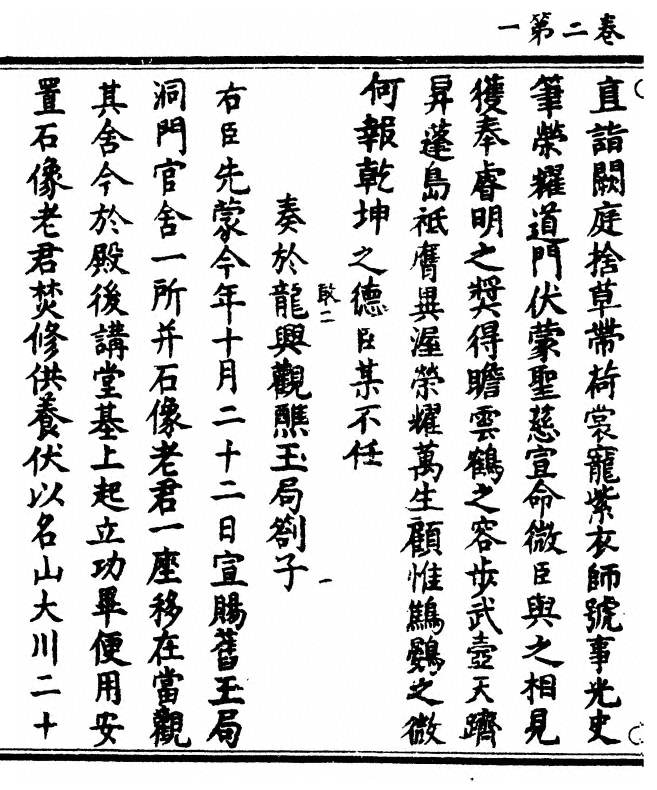 卷二第一
直詣闕庭捨草帶荷裳寵紫衣師號事光史
筆榮耀道門伏蒙聖慈宣命微臣與之相見
獲奉睿明之獎得瞻雲鶴之容步武壺天躋
昇蓬島祗膺異渥榮耀萬生顧惟鷦鷃之微
何報乾坤之德臣某不任
奏於龍興觀醮玉局劄子
右臣先蒙今年十月二十二日宣賜舊玉局
洞門官舍一所并石像老君一座移在當觀
其舍今於殿後講堂基上起立功畢便用安
置石像老君焚修供養伏以名山大川二十